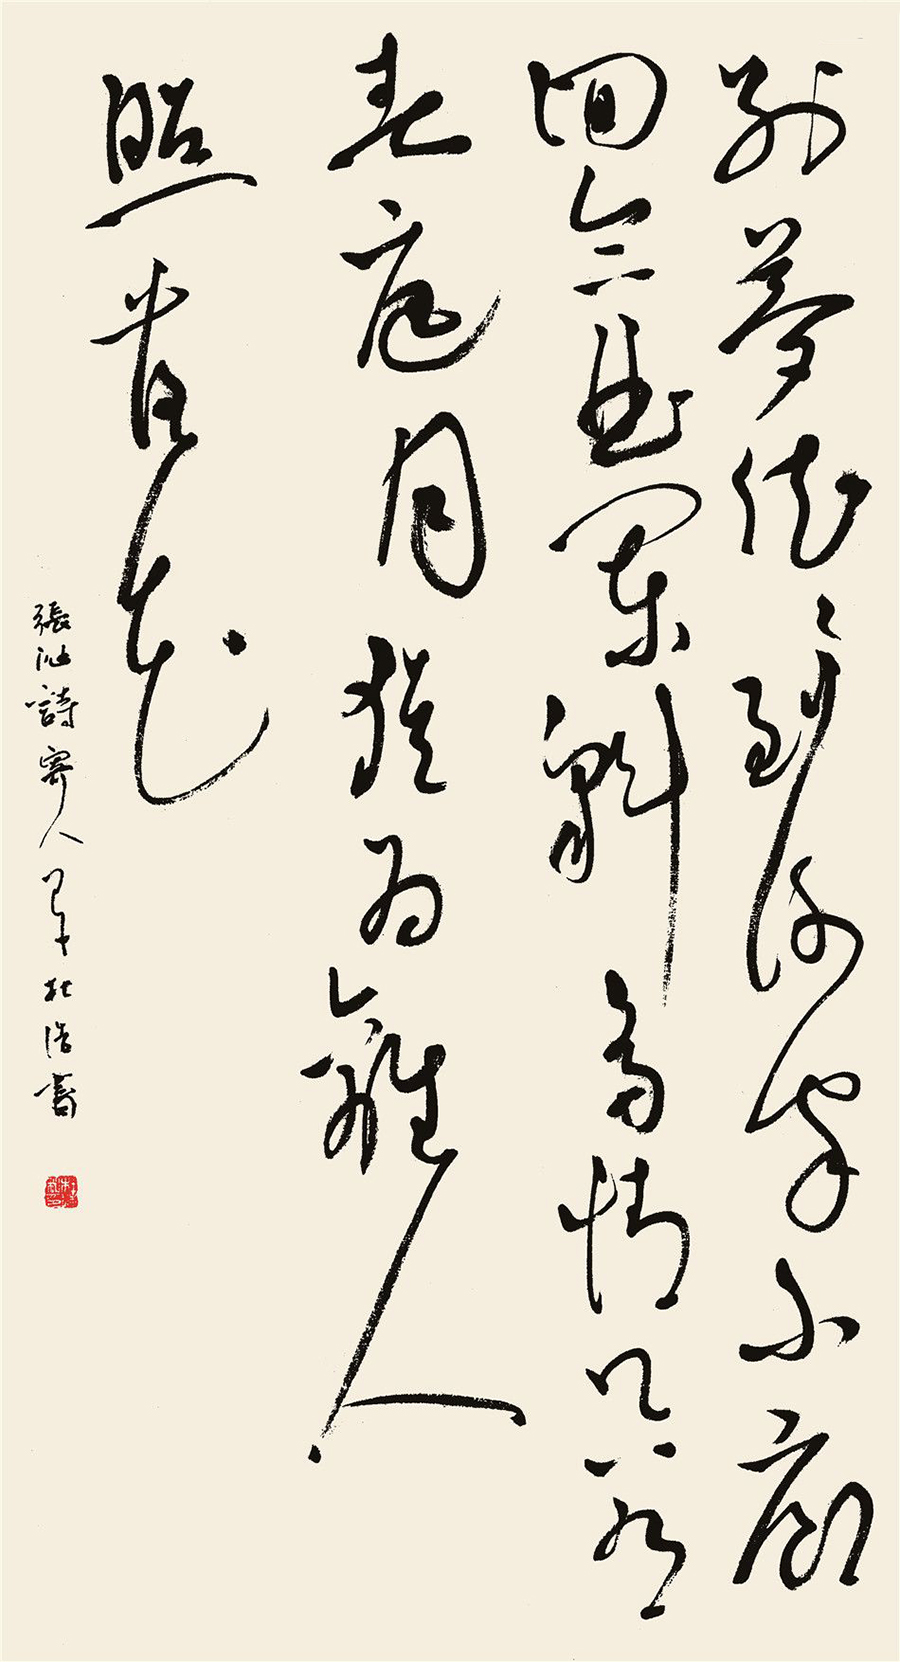 別夢依〻到謝家小廊
回合曲闌斜多情只有
春庭月猶為離人
照落花
張泌詩寄人 杜浩書